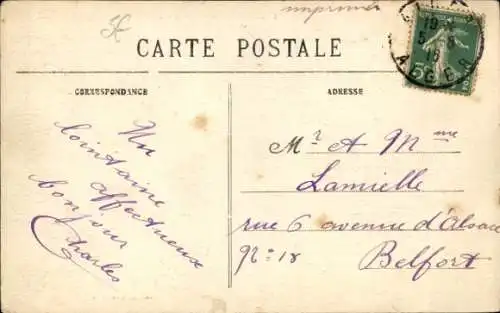 imprimé
CARTE POSTALE
CORRESPONDANCE
ADRESSE
Un
lointaine
affectueux
bonjour
Charles
Mr & Mme
Lamielle
rue 6 avenue d'Alsace
No 18
Belfort
ALGER